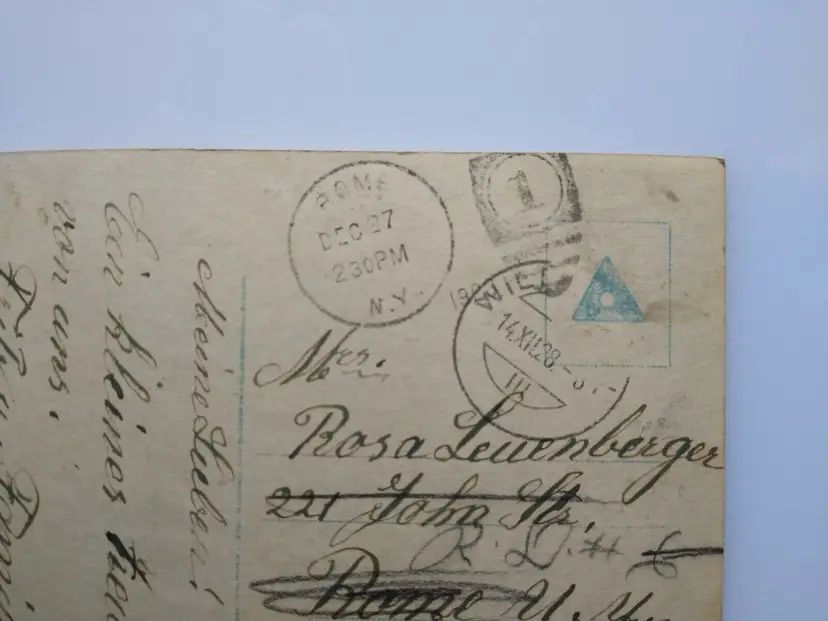 ROME
DEC 27
230PM
N.Y.
1
WIEN
14.XII.28
III
Mrs.
Rosa Leuenberger
221 John Str.
R. D. # 6
Rome N. Y.
Meine Lieben!
Ein kleines
von uns.